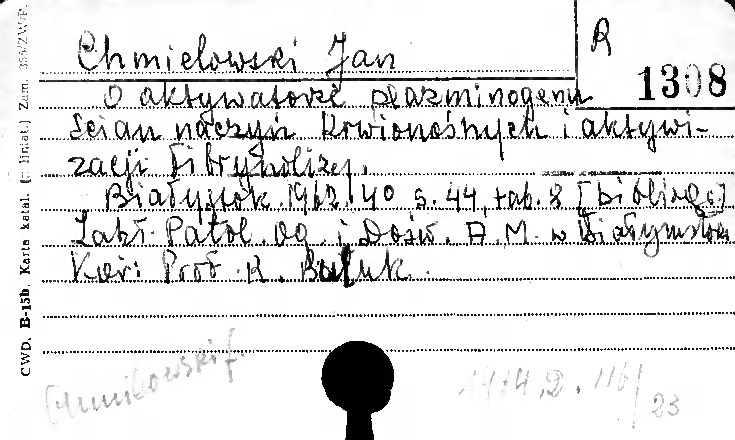 Chmielowski Jan
R
1308
O aktywatorze plazminogenu
ścian naczyń krwionośnych i aktywi-
zacji fibrynolizej.
Białystok 1962. 4° s. 44, tab. 8 [bibliogr.]
Zakł. Patol. Og. i Dośw. A. M. w Białymstoku
Kier: Prof. K. Buluk.
CWD. B-15b. Karta katal. (z liniat.) Zam. 355/ZW/P.
Chmielowski J.
116/
23